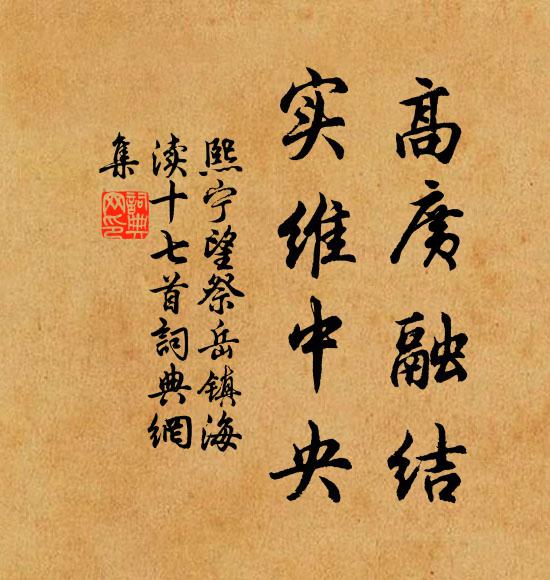 高廣融结
实维中央
熙宁望祭岳镇海
渎十七首詞典網
集
詞典網印